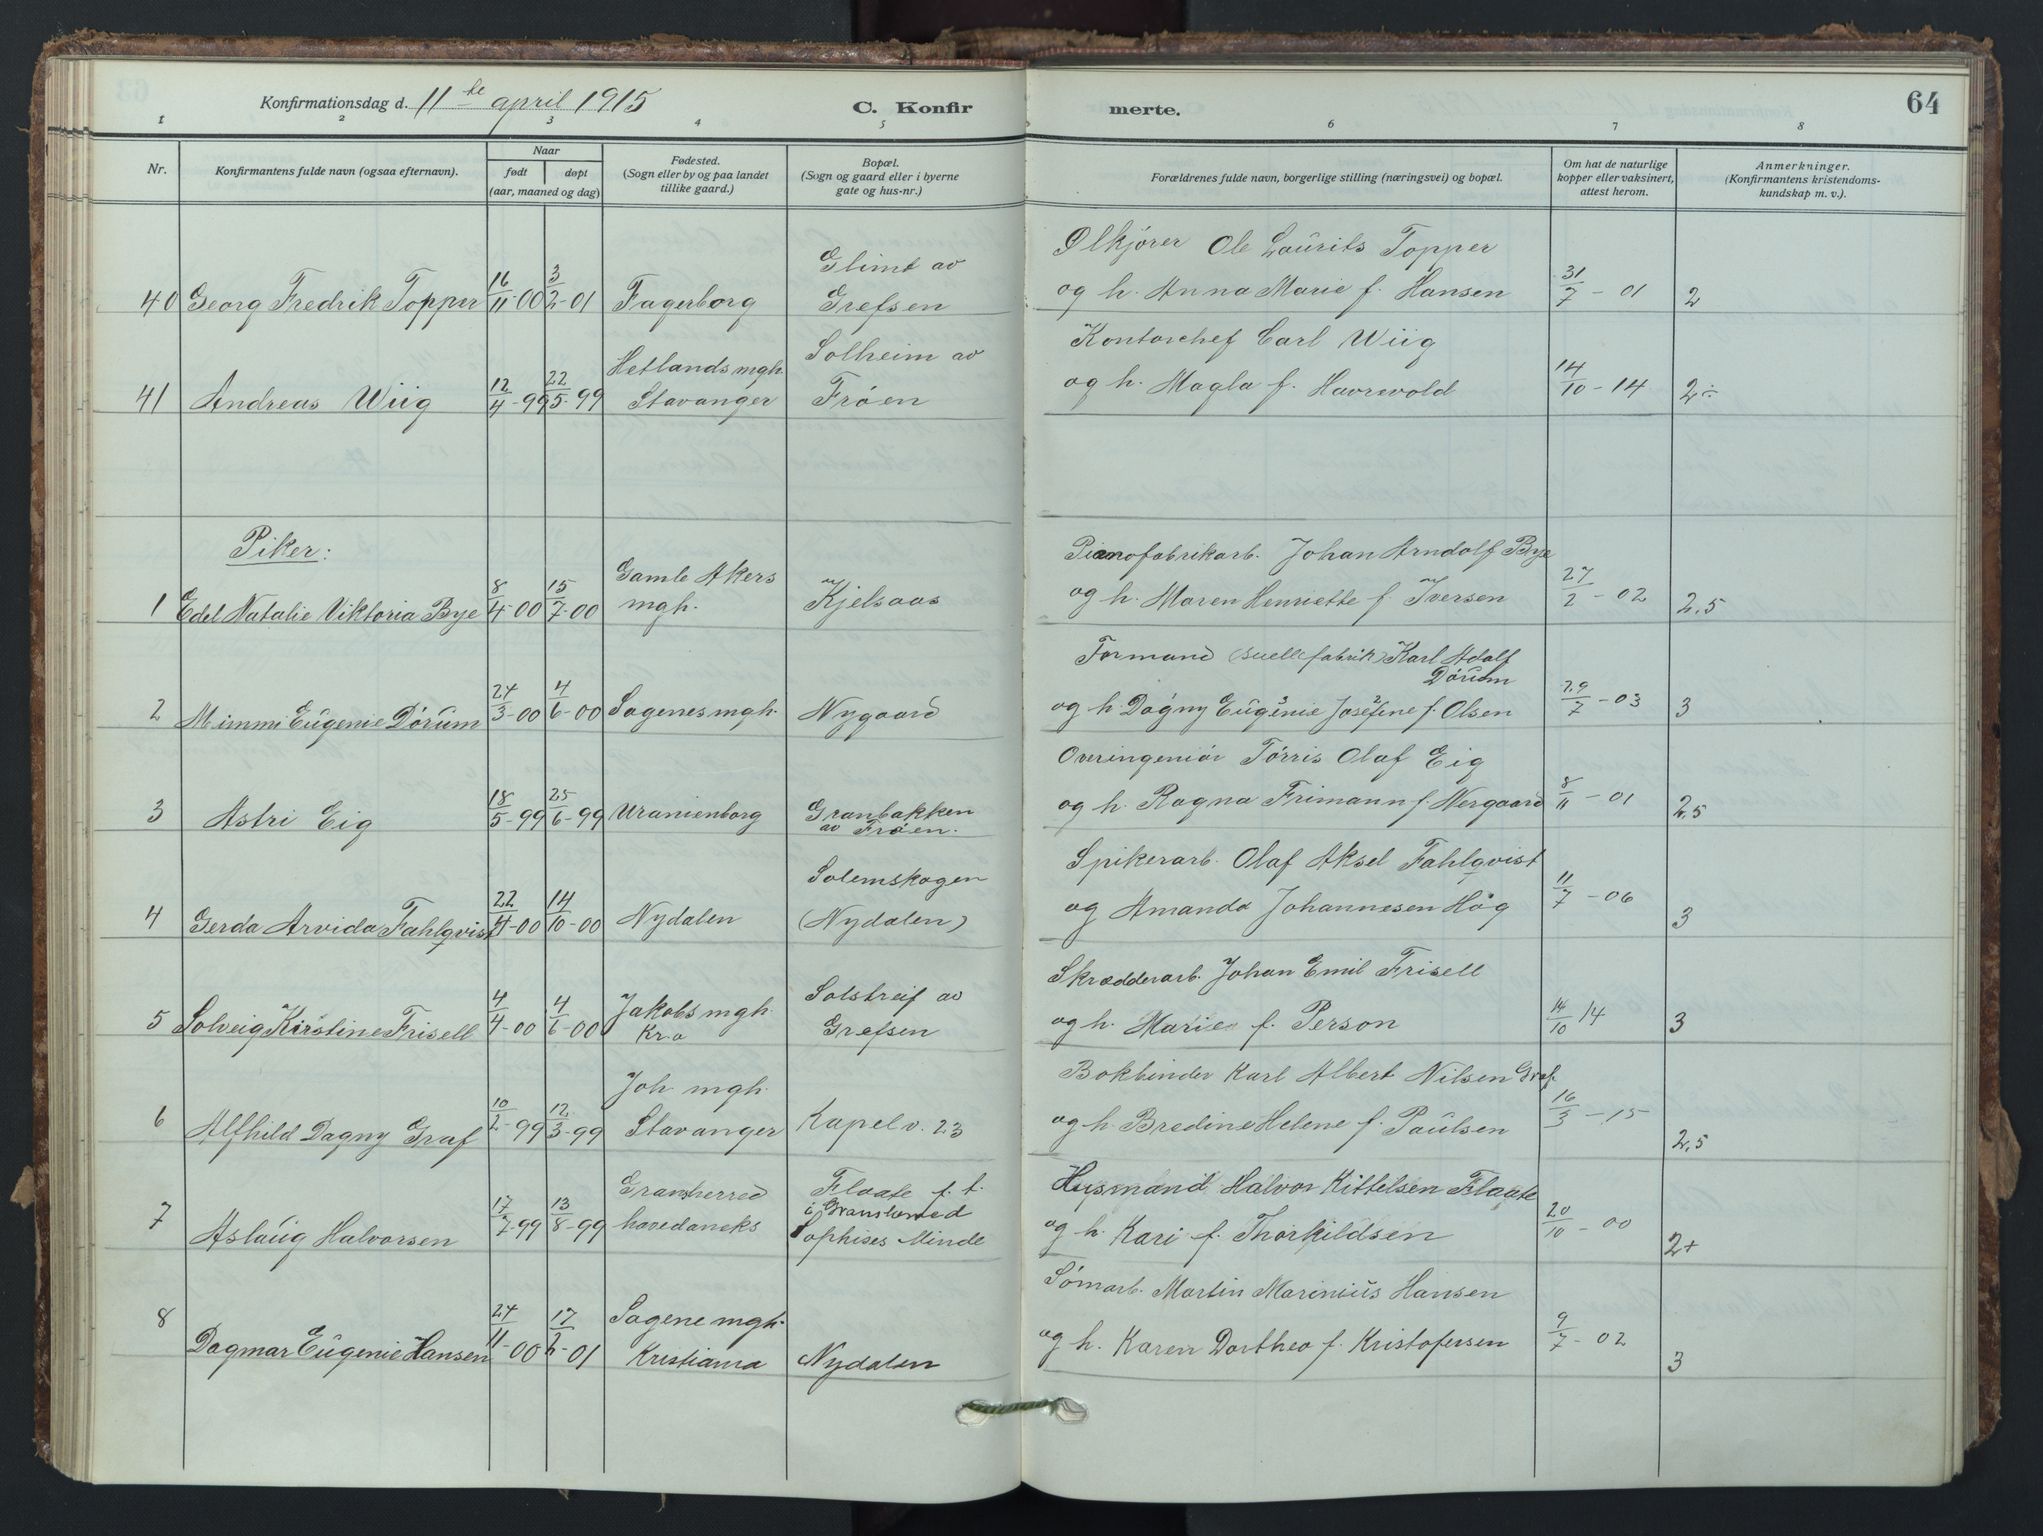 Konfirmationsdag d. 11te april 1915
C. Konfirmerte.
64
1 2 3 4 5 6 7 8
Nr.
Konfirmantens fulde navn (ogsaa efternavn).
Naar
født døpt
(aar, maaned og dag)
Fødested.
(Sogn eller by og paa landet
tillike gaard.)
Bopæl.
(Sogn og gaard eller i byerne
gate og hus-nr.)
Forældrenes fulde navn, borgerlige stilling (næringsvei) og bopæl.
Om hat de naturlige
kopper eller vaksinert,
attest herom.
Anmerkninger.
(Konfirmantens kristendoms-
kundskap m. v.).
Glimt av Ølkjører Ole Laurits Topper
40 Georg Fredrik Topper 16/11-00 3/2-01 Fagerborg Grefsen og h. Anna Marie f. Hansen 31/7-01 2
Hetlands mgh. Solheim av Kontorchef Carl Wiig
41 Andreas Wiig 12/4-99 22/5-99 Stavanger Frøen og h. Magla f. Havrevold 14/10-14 2÷
Piker:
Gamle Akers Pianofabrikarb. Johan Arndolf Bye
1 Edel Natalie Viktoria Bye 8/4-00 15/7-00 mgh. Kjelsaas og h. Maren Henriette f. Iversen 27/2-02 2,5
Formand fabrik) Karl Adolf
Dørum
2 Mimmi Eugenie Dørum 24/3-00 4/6-00 Sagenes mgh. Nygaard og h. Dagny Eugenie Josefine f. Olsen 29/7-03 3
Overingeniør Tørris Olaf Eig
3 Astri Eig 18/5-99 25/6-99 Uranienborg Granbakken og h. Ragna Frimann f. Nergaard 8/11-01 2,5
av Frøen.
Solemskogen Spikerarb. Olaf Aksel Fahlqvist
4 Gerda Arvida Fahlqvist 22/4-00 14/10-00 Nydalen (Nydalen) og Amanda Johannesen Høg 11/7-06 3
Jakobs mgh. Solstreif av Skrædderarb. Johan Emil Frisell
5 Solveig Kirstine Frisell 4/4-00 4/6-00 Kr.a Grefsen og h. Marie f. Person 14/10 14 3
Joh. mgh. Bokbinder Karl Albert Nilsen Graf
6 Alfhild Dagny Graf 10/2-99 12/3-99 Stavanger Kapelv. 23 og h. Bredine Helene f. Paulsen 16/3-15 2,5
Gransherred Flaate f. t. Husmand Halvor Kittelsen Flaate
i Gransherred
7 Aslaug Halvorsen 17/7-99 13/8-99 hovedsneks Sophises Minde og h. Kari f. Thorkildsen 20/10-00 2+
Sagene mgh. Sømarb. Martin Marinius Hansen
8 Dagmar Eugenie Hansen 24/11-00 17/2-01 Kristiania Nydalen og h. Karen Dorthea f. Kristofersen 9/7-02 3